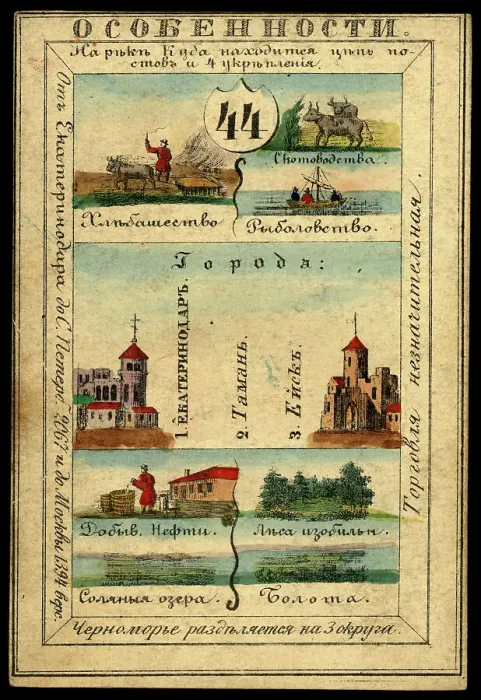 ОСОБЕННОСТИ.
На рѣкѣ Куба находится цѣпь по-
стовъ и 4 укрѣпленія.
44
Скотоводства.
Хлѣбашество
Рыболовство.
Города:
1. ЕКАТЕРИНОДАРЪ.
2. Тамань.
3. Ейскъ.
Добыв. Нефти.
Лѣса изобильн.
Соляныя озера.
Болота.
Отъ Екатеринодара до С. Петерб. 2067 и до Москвы 1394 верс.
Торговля незначительная.
Черноморье раздѣляется на 3 округа.